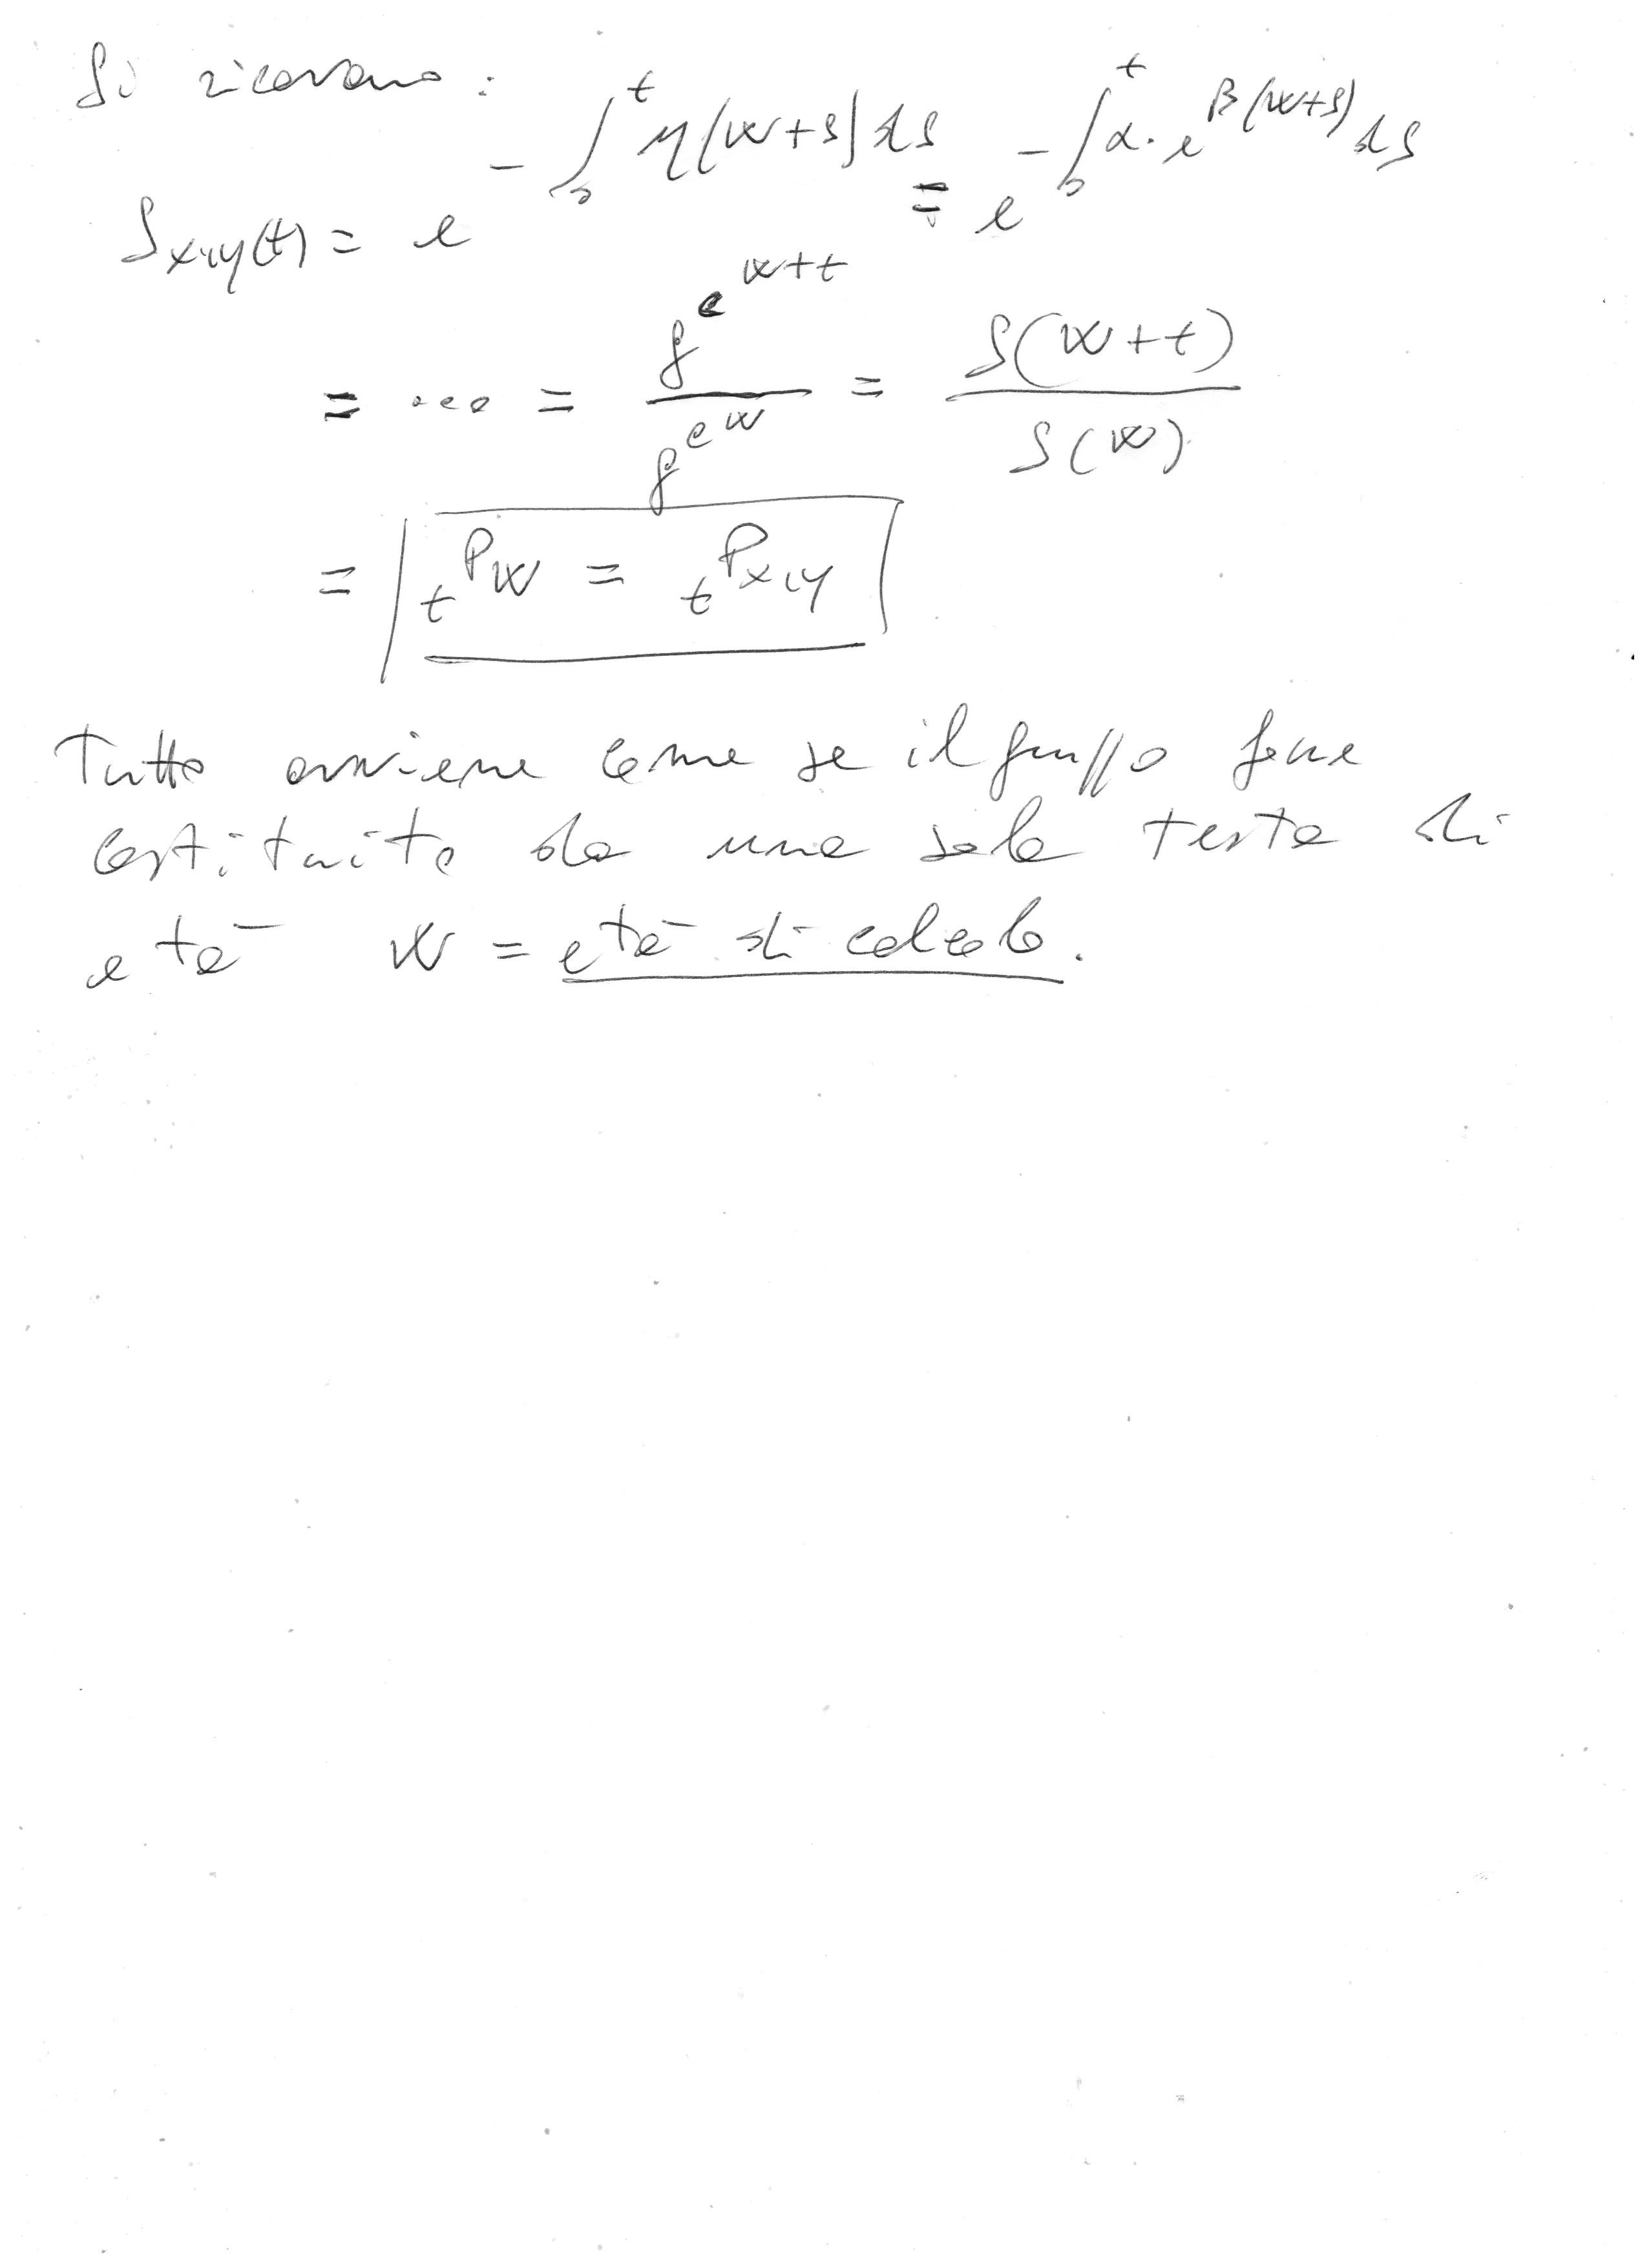 Si ricavano:
S_{x,y}(t) = e^{-∫_0^t μ(w+s) ds} = e^{-∫_0^t α·e^{β(w+s)} ds}
= ... = g^{e^{w+t}} / g^{e^w} = S(w+t) / S(w)
= _tP_w = _tP_{x,y}
Tutto avviene come se il gruppo fosse
costituito da una sola testa di
età w = età di calcolo.